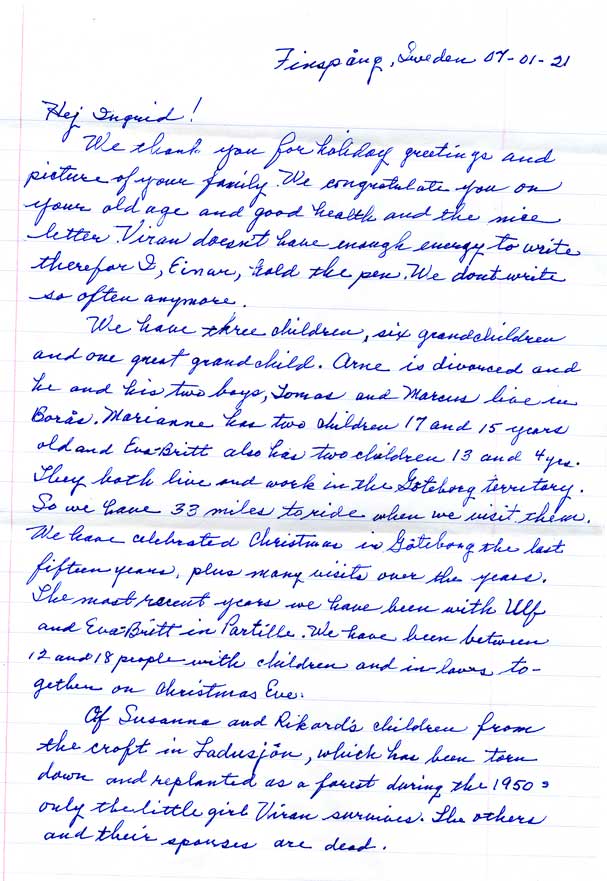 Finspång, Sweden 07-01-21
Hej Ingrid!
We thank you for holiday greetings and
picture of your family. We congratulate you on
your old age and good health and the nice
letter. Viran doesn't have enough energy to write
therefor I, Einar, hold the pen. We dont write
so often anymore.
We have three children, six grandchildren
and one great grandchild. Arne is divorced and
he and his two boys, Tomas and Marcus live in
Borås. Marianne has two children 17 and 15 years
old and Eva-Britt also has two children 13 and 4 yrs.
They both live and work in the Göteborg territory.
So we have 33 miles to ride when we visit them.
We have celebrated Christmas in Göteborg the last
fifteen years, plus many visits over the years.
The most recent years we have been with Ulf
and Eva-Britt in Partille. We have been between
12 and 18 people with children and in-laws to-
gether on Christmas Eve.
Of Susanna and Rikard's children from
the croft in Ladusjön, which has been torn
down and replanted as a forest during the 1950s
only the little girl Viran survives. The others
and their spouses are dead.